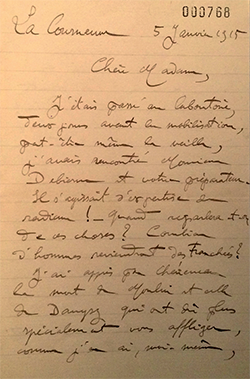 000768
La Courneuve 5 Janvier 1915
Chère Madame,
J'étais passé au laboratoire,
deux jours avant la mobilisation,
peut-être même la veille,
j'avais rencontré Monsieur
Debierne et votre préparateur.
Il s'agissait d'expertise de
radium ! Quand reparlera-t-on
de ces choses ? Combien
d'hommes reviendront des tranchées ?
J'ai appris par
la mort de et celle
de Danysz qui ont dû plus
spécialement vous affliger,
comme j'en ai, moi-même,